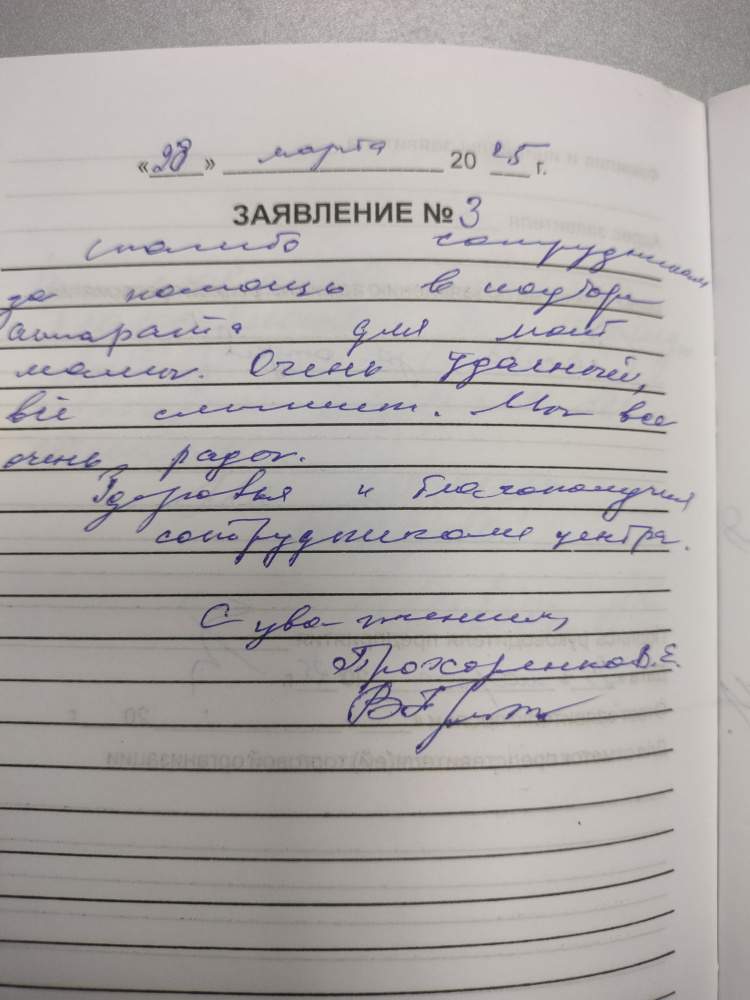 «28» марта 2025 г.
ЗАЯВЛЕНИЕ № 3
Спасибо сотрудникам
за помощь в подборе
аппарата для моей
мамы. Очень удачный,
всё слышит. Мы все
очень рады.
Здоровья и благополучия
сотрудникам центра.
С уважением,
Прохоренко В.Е.